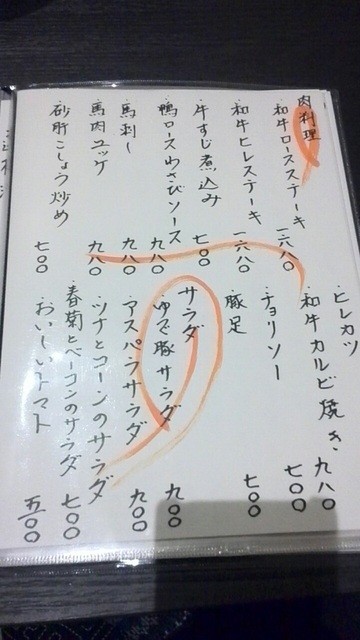 肉料理
和牛ロースステーキ 一六八〇
和牛ヒレステーキ 一六八〇
牛すじ煮込み 七〇〇
鴨ロースわさびソース 九八〇
馬刺し 九八〇
馬肉ユッケ 九八〇
砂肝こしょう炒め 七〇〇
ヒレカツ
和牛カルビ焼き 九八〇
チョリソー 七〇〇
豚足 七〇〇
サラダ
ゆで豚サラダ 九〇〇
アスパラサラダ 九〇〇
ツナとコーンのサラダ
春菊とベーコンのサラダ 七〇〇
おいしいトマト 五〇〇